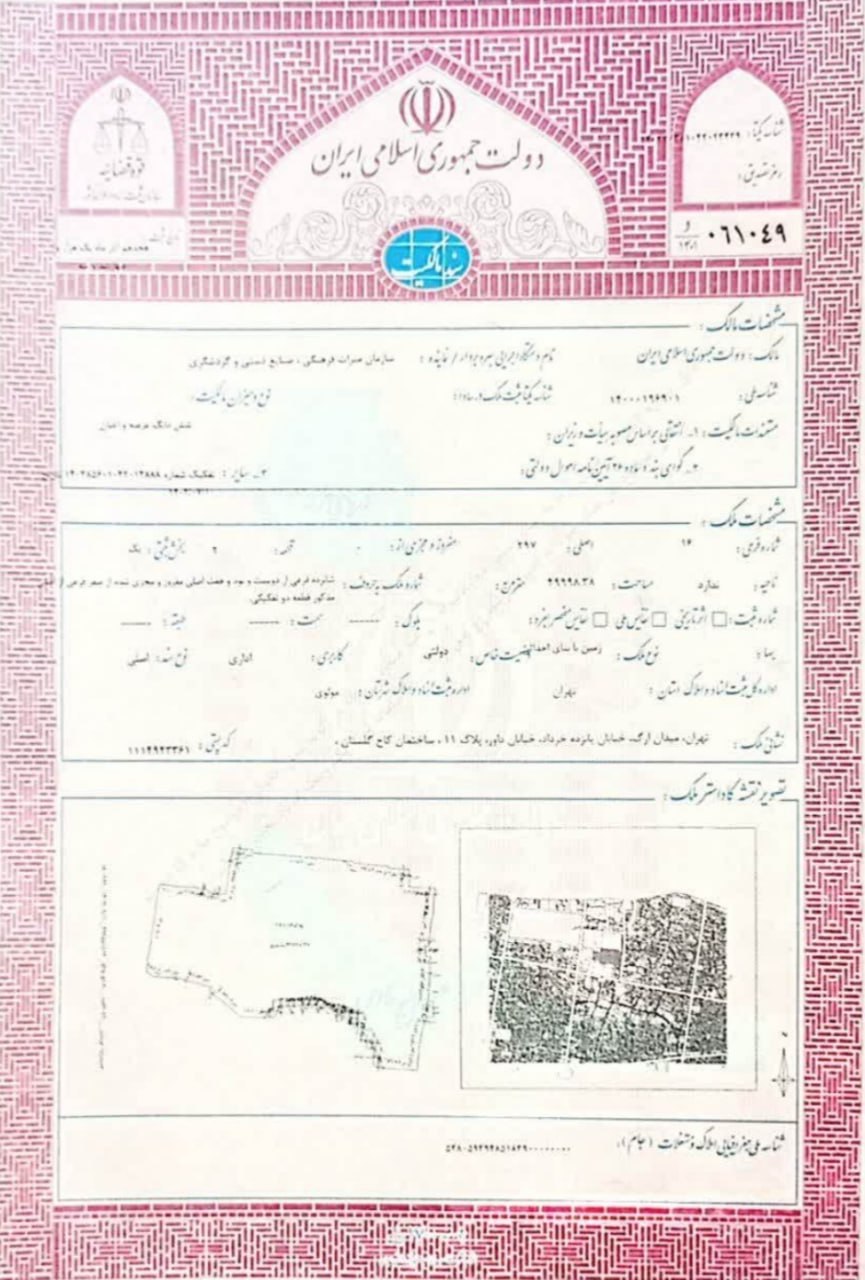 دولت جمهوری اسلامی ایران
قوه قضاییه
شناسه یکتا:
رمز تصدیق:
۰۶۱۰۴۹ و
۱۴۰۱
سند مالکیت
مشخصات مالک:
مالک: دولت جمهوری اسلامی ایران نام دستگاه اجرایی بهره بردار / نماینده: سازمان میراث فرهنگی ، صنایع دستی و گردشگری
شناسه ملی: ۱۴۰۰۰۱۹۶۹۰۱ شناسه یکتا ثبت ملک در سادا: نوع و میزان مالکیت:
شش دانگ عرصه و اعیان
مستندات مالکیت: ۱- انتقالی بر اساس مصوبه هیأت وزیران:
۲- گواهی بند ماده ۲۶ آیین نامه اموال دولتی: ۳- سایر: تفکیک شماره
مشخصات ملک:
شماره فرعی: ۱۶ اصلی: ۲۹۷ مفروز و مجزی از: ۰ قطعه: ۲ بخش ثبتی: یک
ناحیه: ندارد مساحت: ۲۹۹۹۸.۳۸ مترمربع: شماره ملک به حروف: شانزده فرعی از دویست و نود و هفت اصلی مفروز و مجزی شده از صفر فرعی از اصلی
مذکور قطعه دو تفکیکی.
شماره ثبت: اثر تاریخی نفایس ملی نفایس منحصر بفرد: بلوک: ------ سمت: ------ طبقه: ------
بها: نوع ملک: زمین با بنای احداثی وضعیت خاص: دولتی کاربری: اداری نوع سند: اصلی
اداره کل ثبت اسناد و املاک استان: تهران اداره ثبت اسناد و املاک شهرستان: مولوی
نشانی ملک: تهران، میدان ارگ، خیابان پانزده خرداد، خیابان داور، پلاک ۱۱ ، ساختمان کاخ گلستان ، کد پستی: ۱۱۱۴۹۴۳۳۶۱
تصویر نقشه کاداستر ملک:
شناسه ملی جغرافیایی املاک و مستغلات (جام):